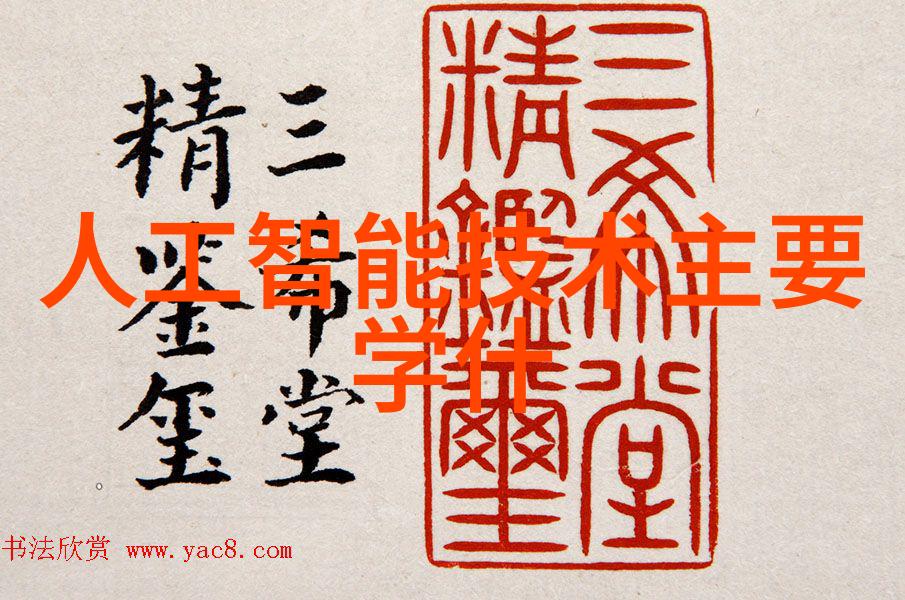 三希堂
精鉴玺
三希堂
精鑑璽
人工智能技术主要
学什
书法欣赏 www.yac8.com